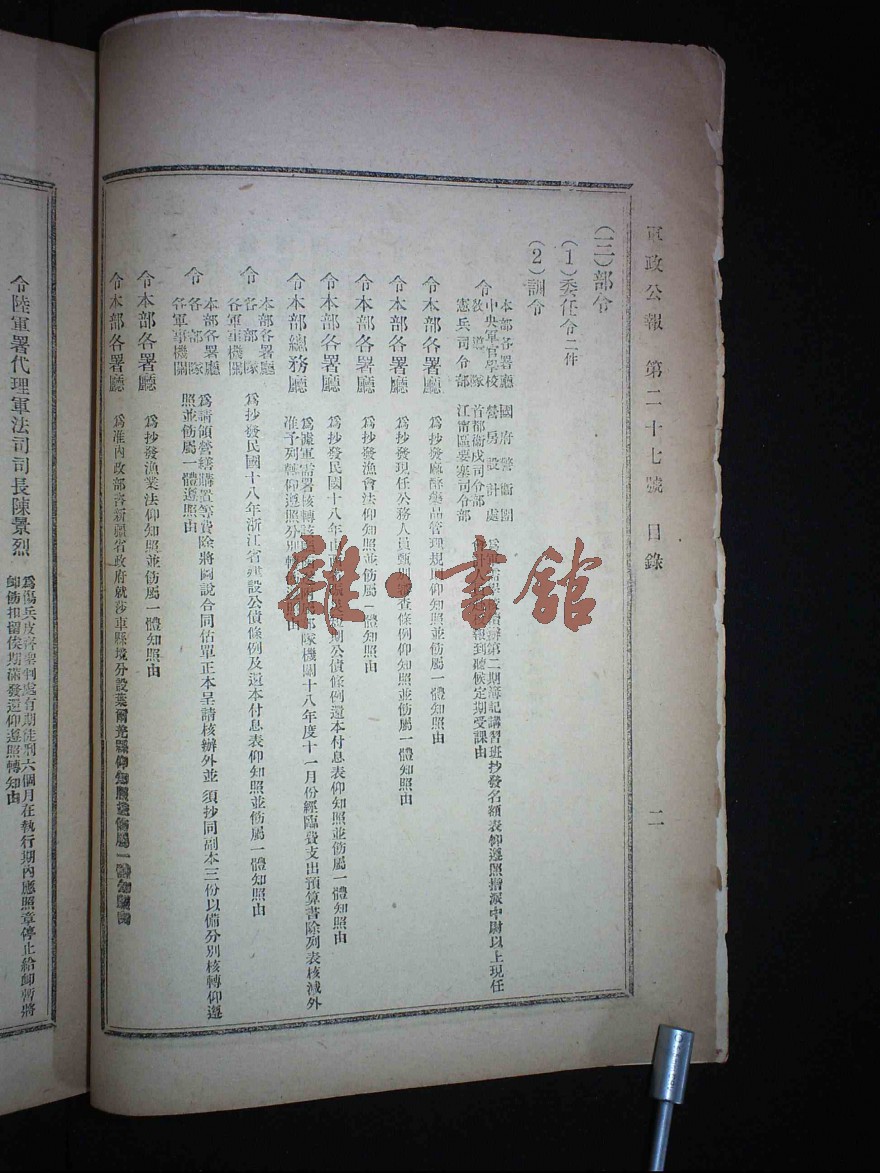 軍政公報 第二十七號 目錄
二
(三)部令
(1)委任令 二件
(2)訓令
令
本部各署廳
中央軍官學校
教導隊
憲兵司令部
國府警衛團
營房設計處
首都衛戍司令部
江甯區要塞司令部
第二期簿記講習班抄發名額表仰遵照揩派中尉以上現任
報到聽候定期受課由
令本部各署廳 為抄發麻醉藥品管理規則仰知照並飭屬一體知照由
令本部各署廳 為抄發現任公務人員甄別審查條例仰知照並飭屬一體知照由
令本部各署廳 為抄發漁會法仰知照並飭屬一體知照由
令本部各署廳 為抄發民國十八年 短期公債條例還本付息表仰知照並飭屬一體知照由
令本部總務廳 為據軍需署核轉 部隊機關十八年度十一月份經臨費支出預算書除列表核減外
准予列轉仰遵照分別轉 由
令
本部各署廳
各部隊
各軍軍機關
為抄發民國十八年浙江省建設公債條例及還本付息表仰知照並飭屬一體知照由
令
本部各署廳
各部隊
各軍事機關
為請領營繕購置等費除將圖說合同估單正本呈請核辦外並須抄同副本三份以備分別核轉仰遵
照並飭屬一體遵照由
令本部各署廳 為抄發漁業法仰知照並飭屬一體知照由
令本部各署廳 為准內政部咨新疆省政府就莎車縣境分設葉爾羌縣仰知照並飭屬一體知照由
令陸軍署代理軍法司司長陳景烈
為傷兵皮 處有期徒刑六個月在執行期內應照章停止給卹暫將
卹飭扣留俟期滿發還仰遵照轉知由
雜·書館